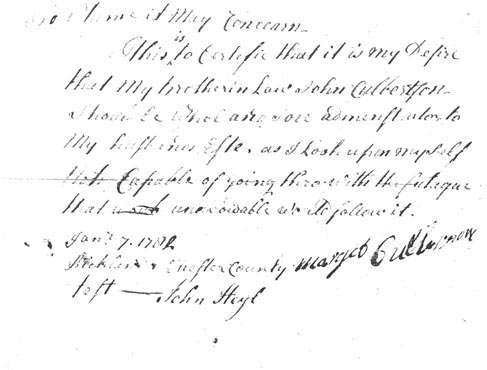 To Whome it May Concearn
This is to Certefie that it is my Desire
that my brother in Law John Culbertson
Should be Whol and Sole adminstrator to
My husbands Este. as I Look upon myself
Not Capable of going thro with the fatague
that unavoidable would follow it.
Jany 7. 1782
Chester County Margret Culbertson
test — John Heyl